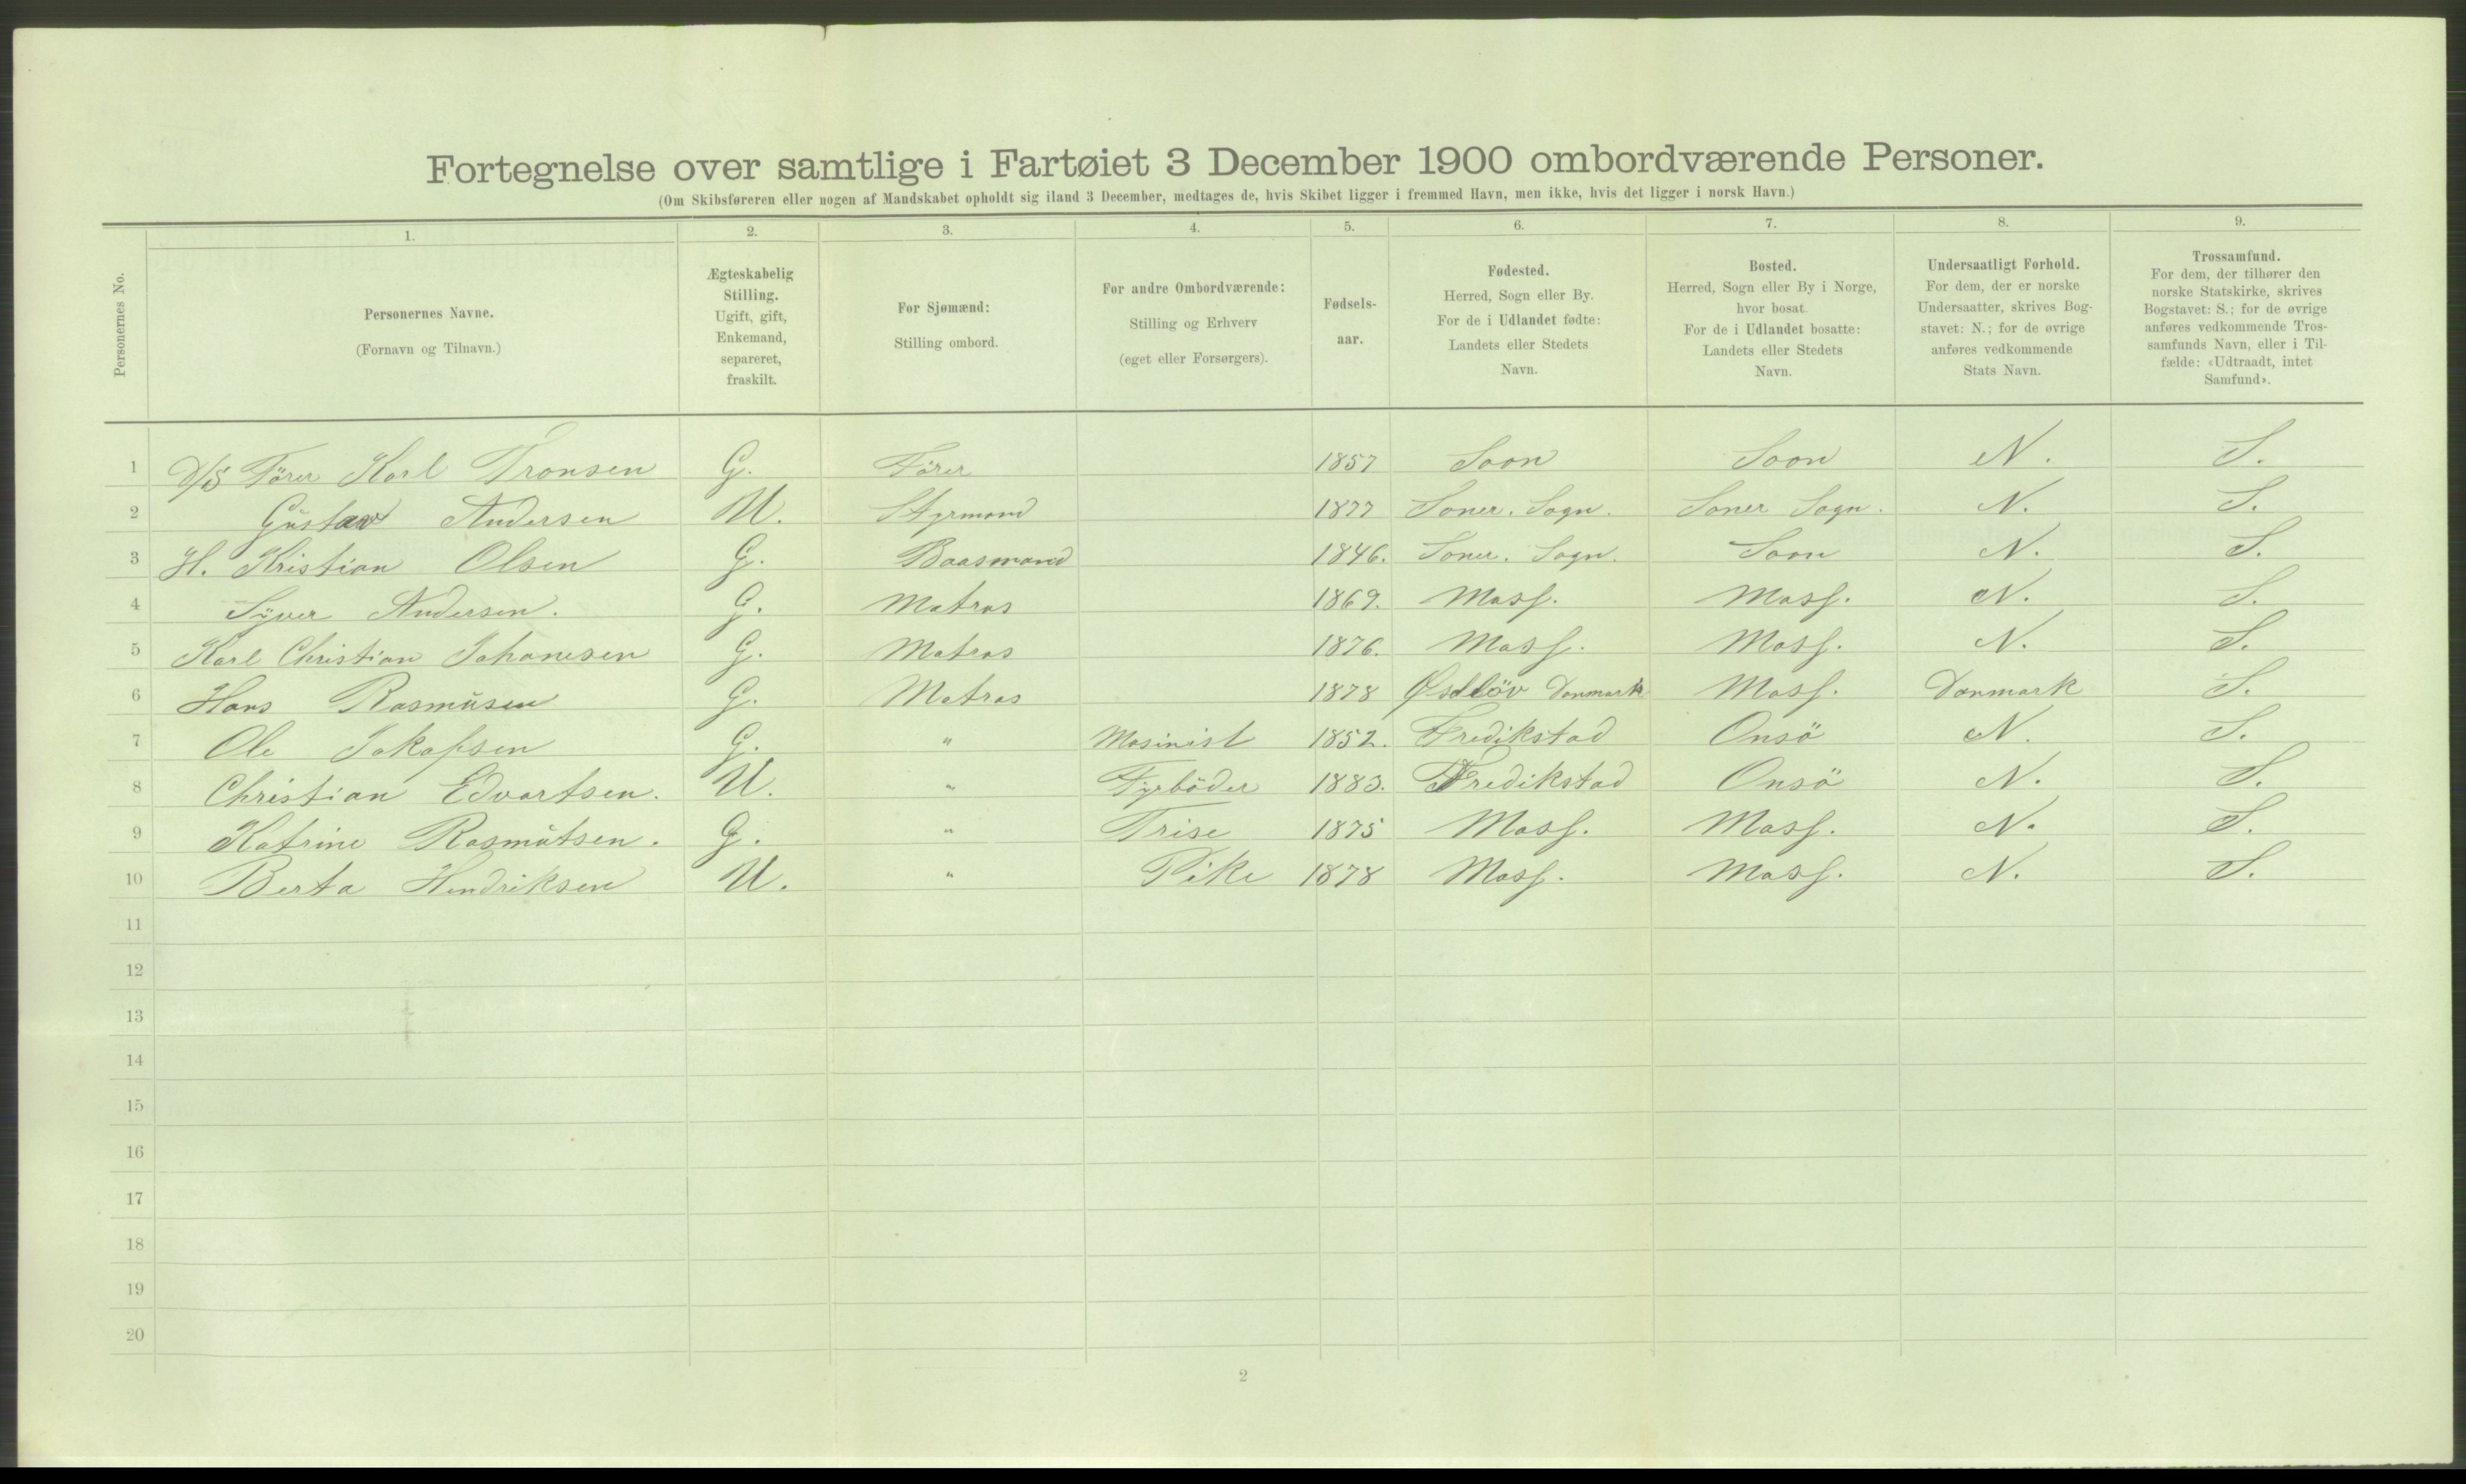 Fortegnelse over samtlige i Fartøiet 3 December 1900 ombordværende Personer.
(Om Skibsføreren eller nogen af Mandskabet opholdt sig iland 3 December, medtages de, hvis Skibet ligger i fremmed Havn, men ikke, hvis det ligger i norsk Havn.)
Personernes No.
1.
Personernes Navne.
(Fornavn og Tilnavn.)
2.
Ægteskabelig
Stilling.
Ugift, gift,
Enkemand,
separeret,
fraskilt.
3.
For Sjømænd:
Stilling ombord.
4.
For andre Ombordværende:
Stilling og Erhverv
(eget eller Forsørgers).
5.
Fødsels-
aar.
6.
Fødested.
Herred, Sogn eller By.
For de i Udlandet fødte:
Landets eller Stedets
Navn.
7.
Bosted.
Herred, Sogn eller By i Norge,
hvor bosat.
For de i Udlandet bosatte:
Landets eller Stedets
Navn.
8.
Undersaatligt Forhold.
For dem, der er norske
Undersaatter, skrives Bog-
stavet: N.; for de øvrige
anføres vedkommende
Stats Navn.
9.
Trossamfund.
For dem, der tilhører den
norske Statskirke, skrives
Bogstavet: S.; for de øvrige
anføres vedkommende Tros-
samfunds Navn, eller i Til-
fælde: «Udtraadt, intet
Samfund».
1 D/S Förer Karl Tronsen G. Förer 1857 Soon Soon N. S.
2 Gustav Andersen U. Styrmand 1877 Soner. Sogn. Soner Sogn. N. S.
3 H. Kristian Olsen G. Baasmand 1846. Soner. Sogn. Soon N. S.
4 Syver Andersen. G. Matras 1869. Moss. Moss. N. S.
5 Karl Christian Johanesen G. Matros 1876. Moss. Moss. N. S.
6 Hans Rasmusen G. Matras 1878 Danmark Moss. Danmark S.
7 Ole Jakafsen G. " Masinist 1852. Fredikstad Onsö N. S.
8 Christian Edvartsen. U. " Fyrböder 1883. Fredikstad Onsö N. S.
9 Katrine Rasmutsen. G. " Trise 1875 Moss. Moss. N. S.
10 Berta Hendriksen U. " Pike 1878 Moss. Moss. N. S.
11
12
13
14
15
16
17
18
19
20
2